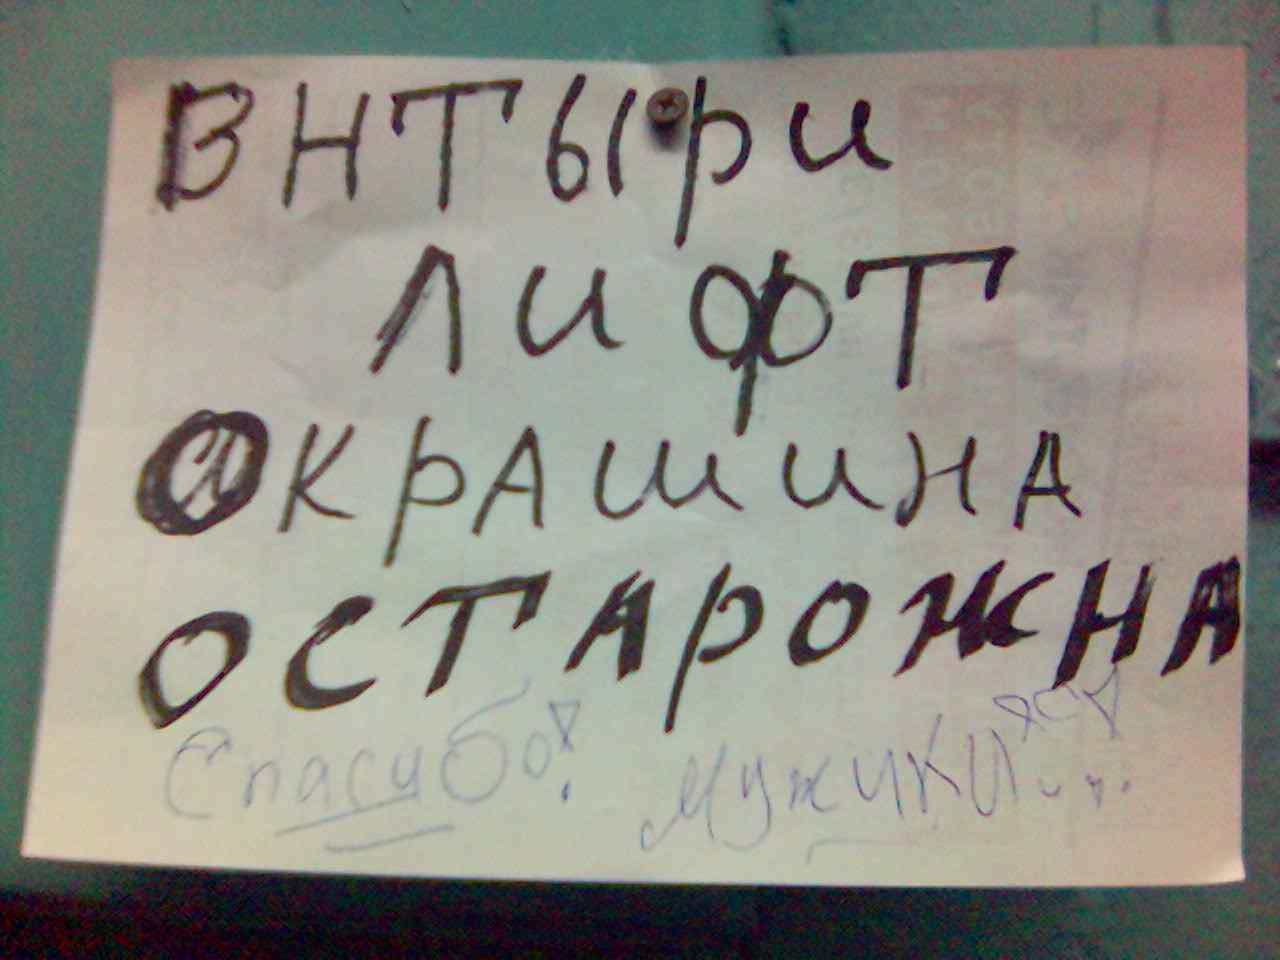 ВНТЫРИ
ЛИФТ
ОКРАШИНА
ОСТАРОЖНА
Спасибо! Мужики!!!